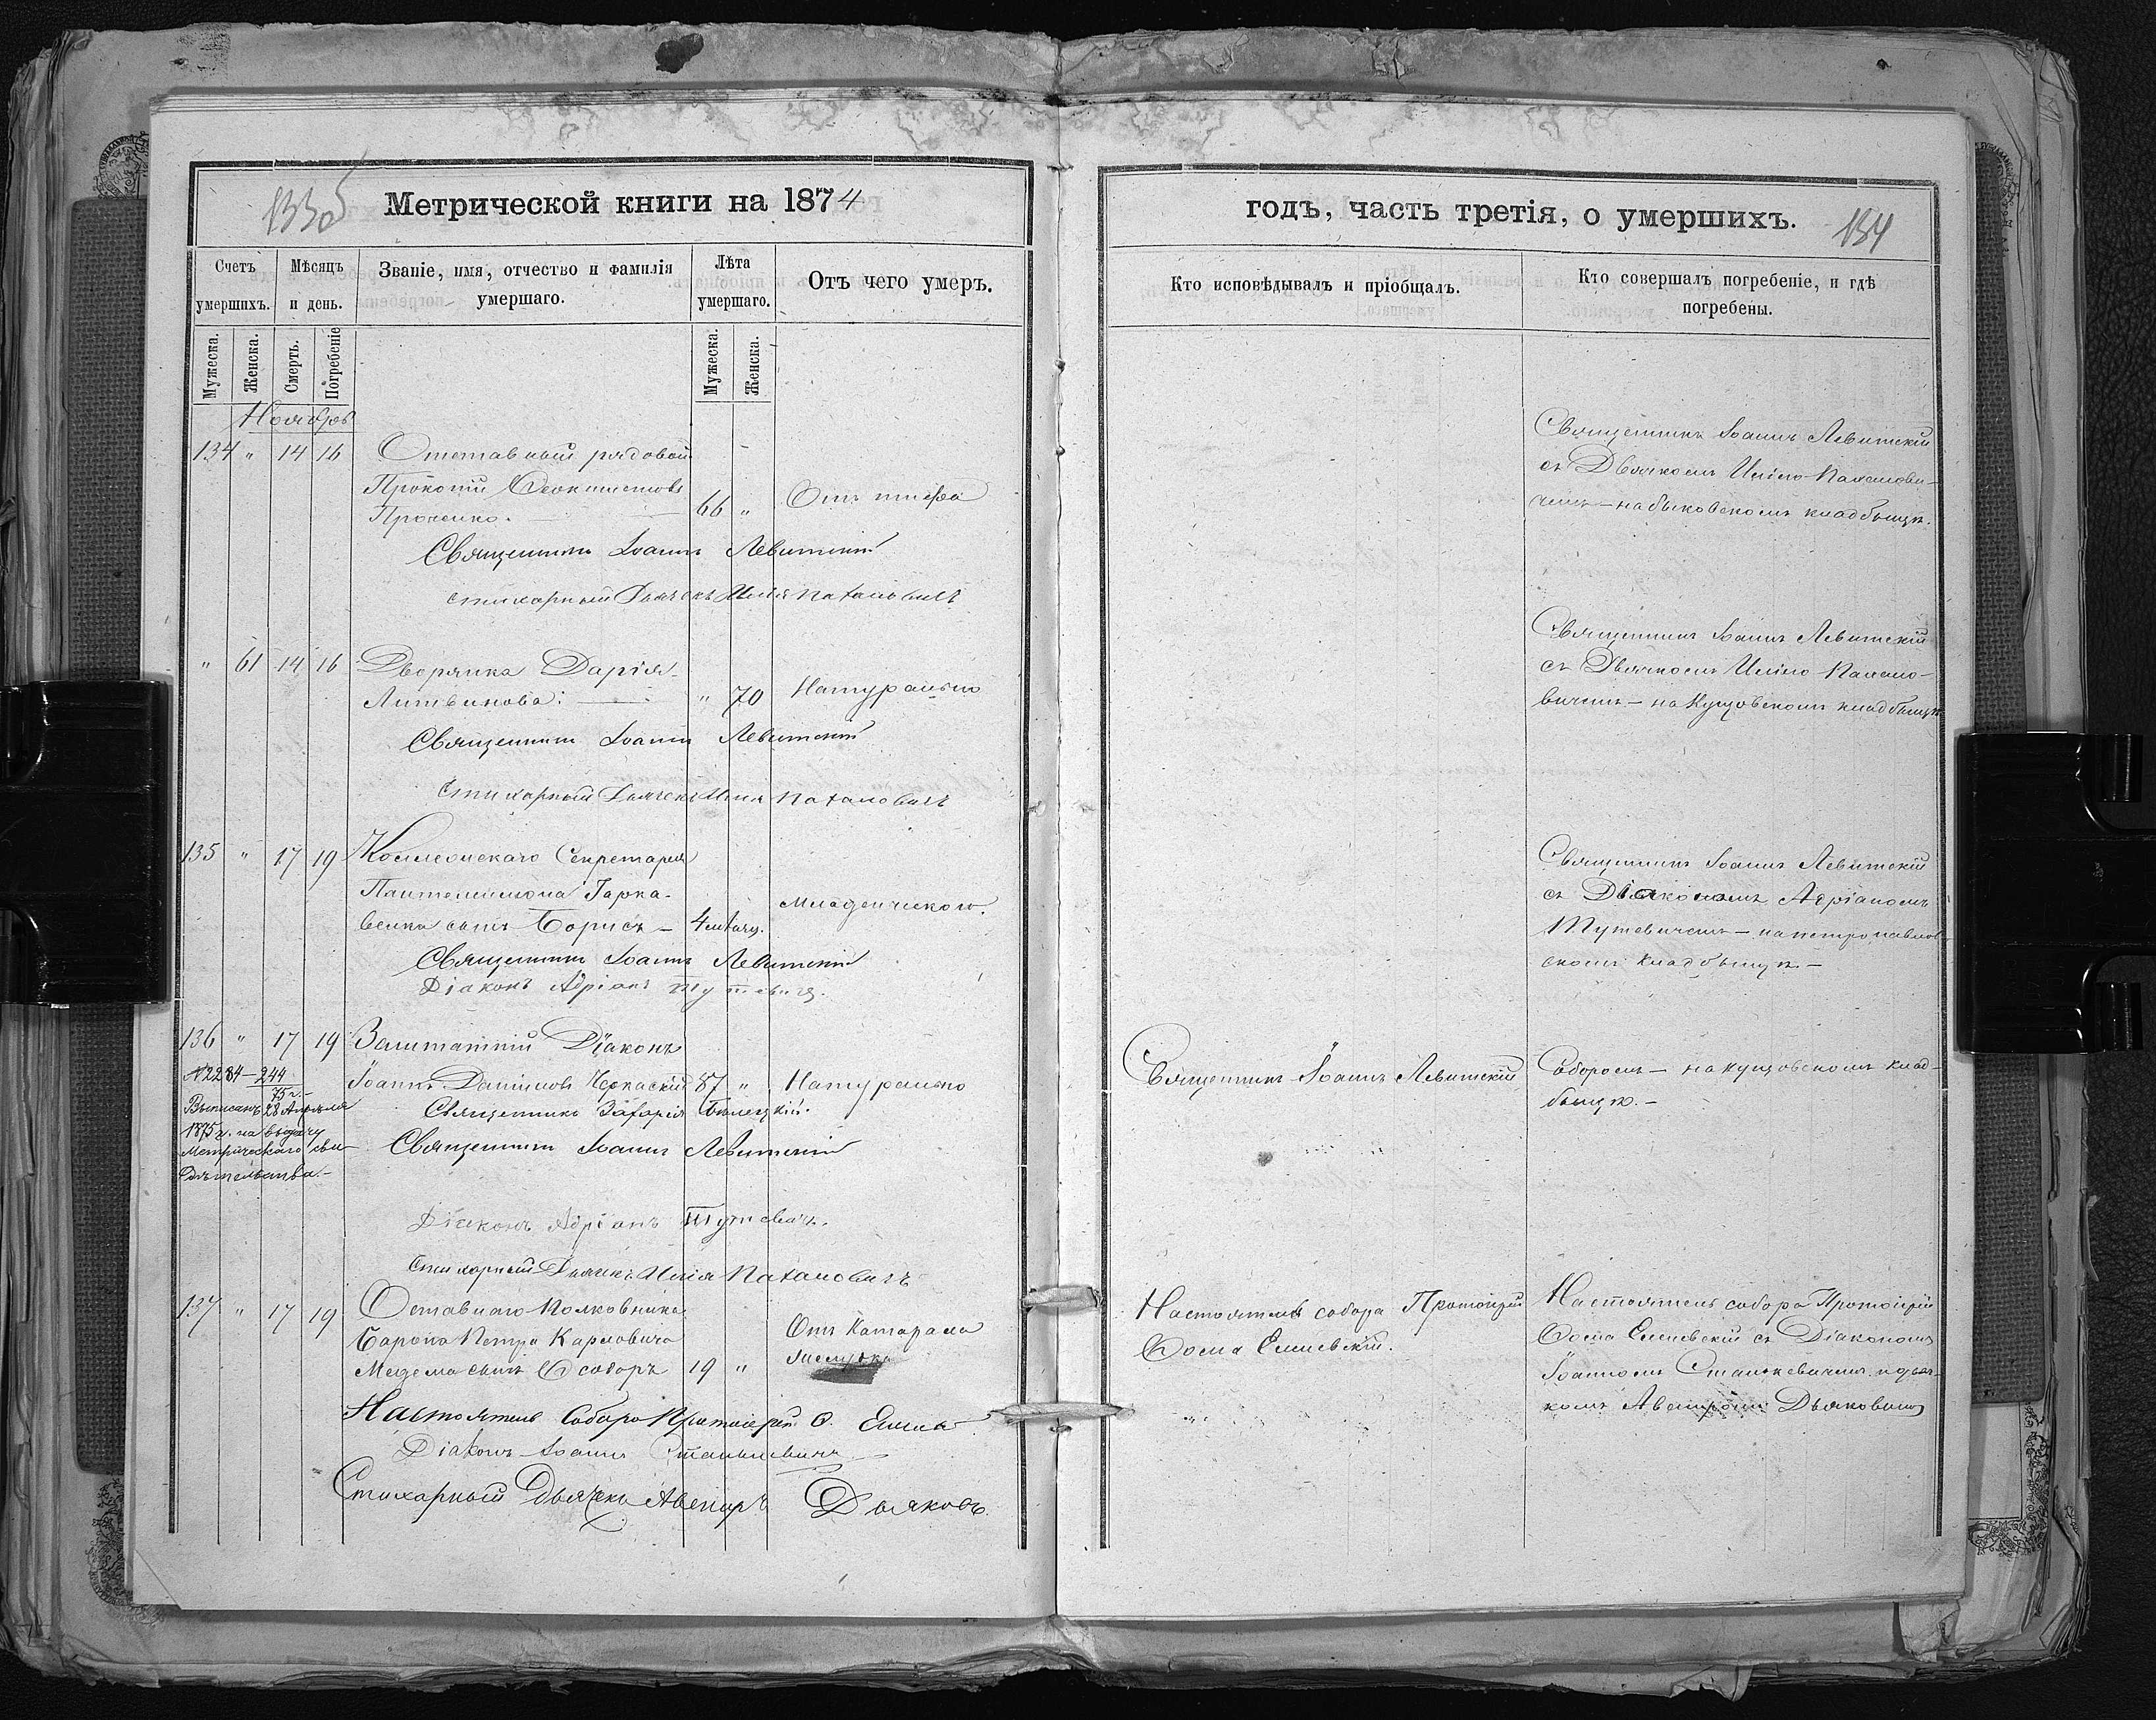 133об
Метрической книги на 1874
годъ, часть третія, о умершихъ.
134
Счетъ умершихъ.
Мѣсяцъ и день.
Званіе, имя, отчество и фамилія умершаго.
Лѣта умершаго.
Отъ чего умеръ.
Кто исповѣдывалъ и пріобщалъ.
Кто совершалъ погребеніе, и гдѣ погребены.
Мужеска.
Женска.
Смерть.
Погребеніе
Мужеска.
Женска.
Ноябрь
134 " 14 16 Отставный рядовой
Прокопій Феоктистовъ
Проценко. 66 " Отъ тифа
Священникъ Іоаннъ Левитскій
съ Дьячкомъ Иліею
на быковскомъ кладбищѣ.
Священникъ Іоаннъ Левитскій
стихарный Дьячекъ Илія
" 61 14 16 Дворянка Дарія
Литвинова. " 70 Натурально
Священникъ Іоаннъ Левитскій
съ Дьячкомъ Иліею
на Кущовскомъ кладбищѣ
Священникъ Іоаннъ Левитскій
Стихарный Дьячекъ Илія
135 " 17 19 Коллежскаго Секретаря
Пантелеимона Гарка-
венка сынъ Борисъ – 4 мѣсяц. Младенческою.
Священникъ Іоаннъ Левитскій
съ Діакономъ Адріаномъ
Тутевичемъ – на петропавлов-
скомъ кладбищѣ. –
Священникъ Іоаннъ Левитскій
Діаконъ Адріанъ Тутевичъ.
136 " 17 19 Заштатній Діаконъ
Іоаннъ Даніиловъ Черкаскій 87 " Натурально
Священникъ Іоаннъ Левитскій
Соборомъ – на кущовскомъ клад-
бищѣ. –
№ 2284 – 244
75 г. –
Выписанъ 28 Апрѣля
1875 г. на выдачу
Метрическаго сви-
дѣтельства. –
Священникъ Захарія Білецкій.
Священникъ Іоаннъ Левитскій
Діаконъ Адріанъ Тутевичъ.
Стихарный Дьячекъ Илія
137 " 17 19 Отставнаго Полковника
Барона Петра Карловича
Медема сынъ Ѳеодоръ 19 " Отъ Катарала
Настоятель собора Протоіерей
Ѳома
Настоятель собора Протоіерей
Ѳома съ Діакономъ
Іоанномъ Станкевичемъ и дьяч-
комъ Дьяковымъ
Настоятель Собора Протоіерей Ѳ.
Діаконъ Іоаннъ Станкевичъ
Стихарный Дьячекъ Авениръ Дьяковъ.